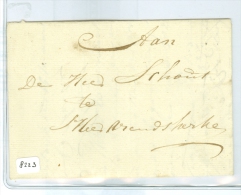 Aan
De Heer Schout
te
8223